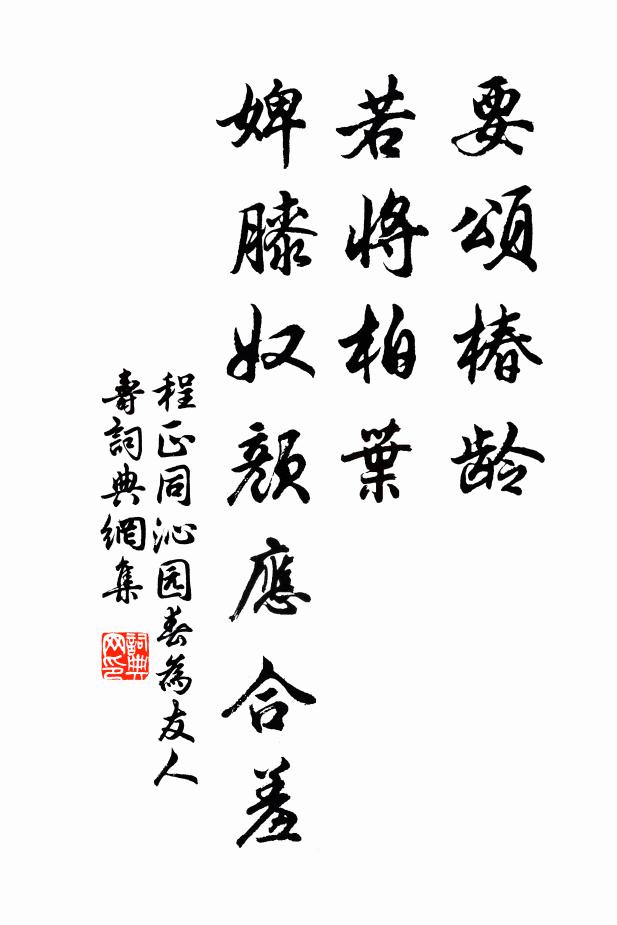 要頌椿龄
若將柏葉
婢膝奴顏應合羞
程正同沁园春為友人
壽詞典網集
詞典
网印